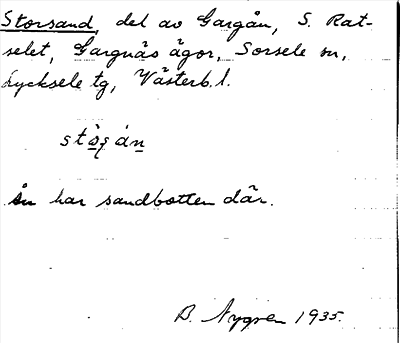 Storsand, del av Gargån, S. Rat-
selet, Gargnäs ägor, Sorsele sn,
Lycksele tg, Västerb. l.
Ån har sandbotten där.
B. Nygren 1935.